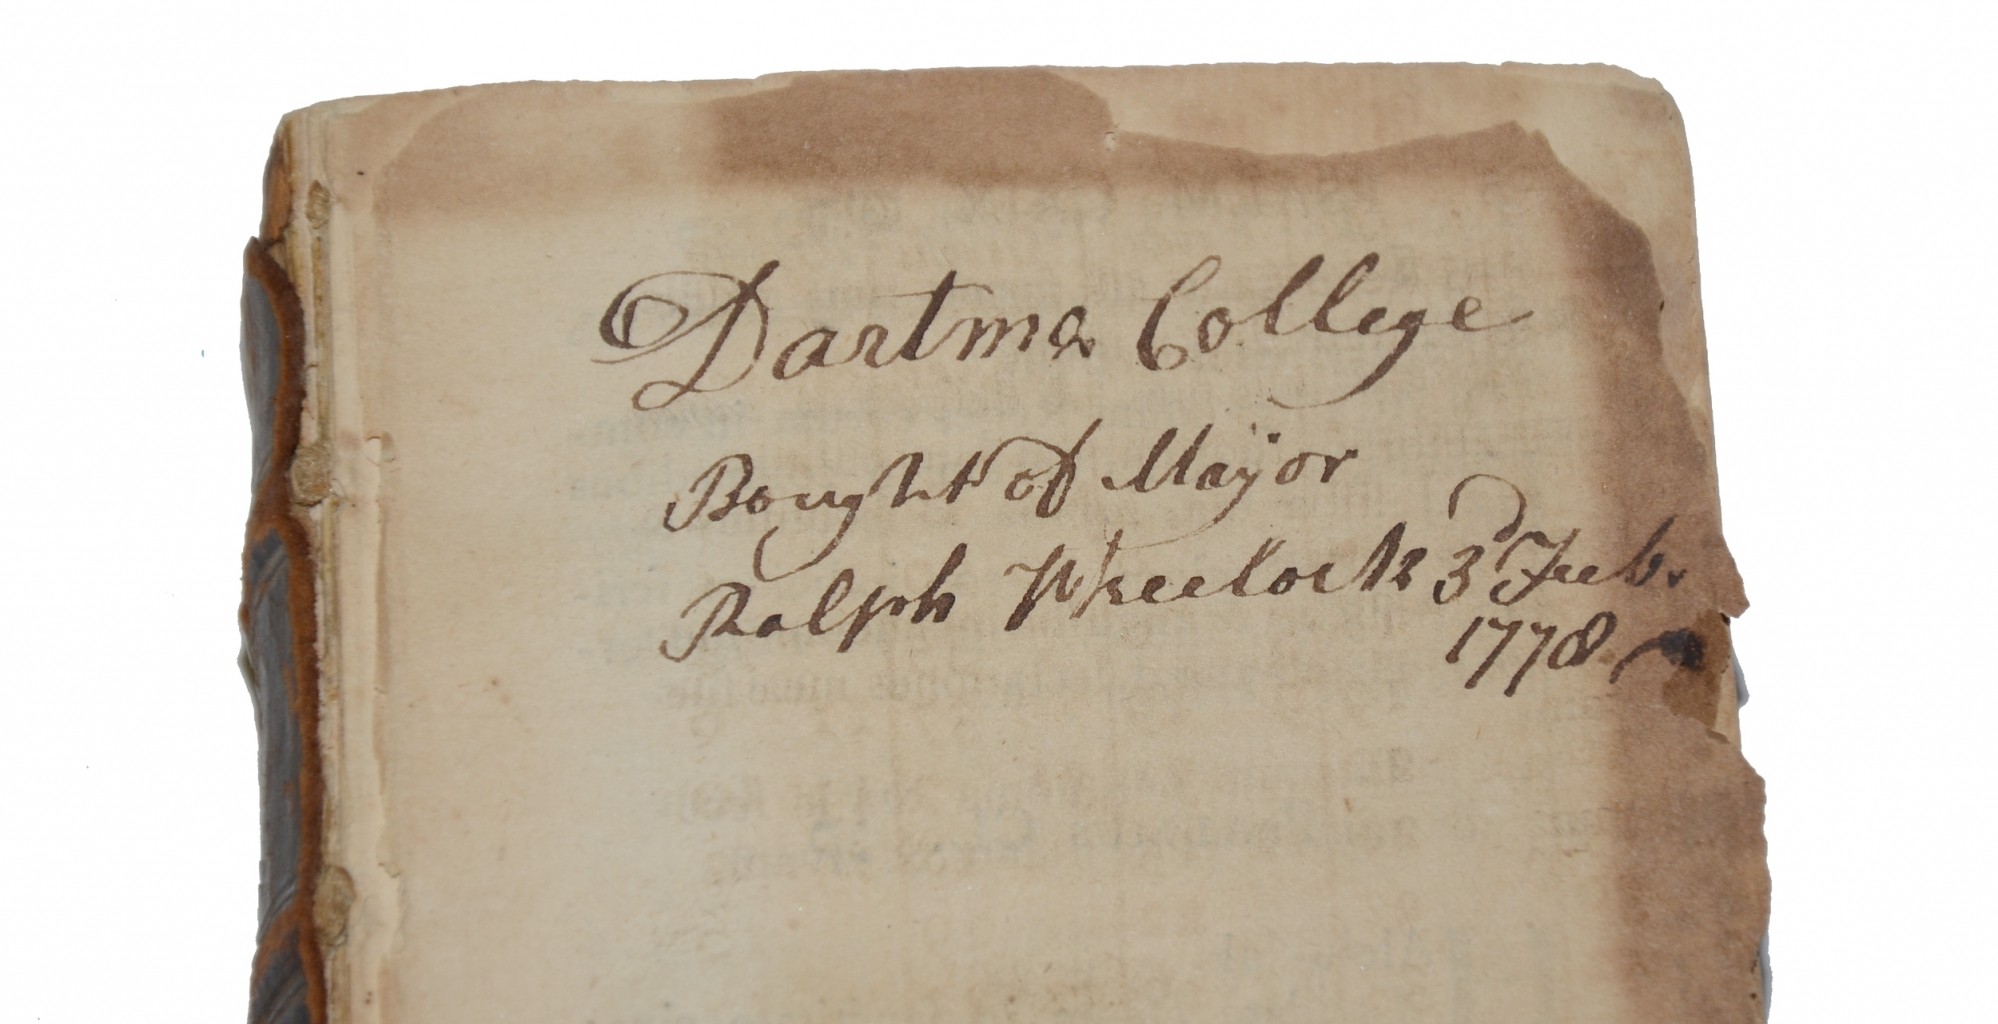 Dartma College
Bought of Mayor
Ralph Wheelock 3d Feb.
1778